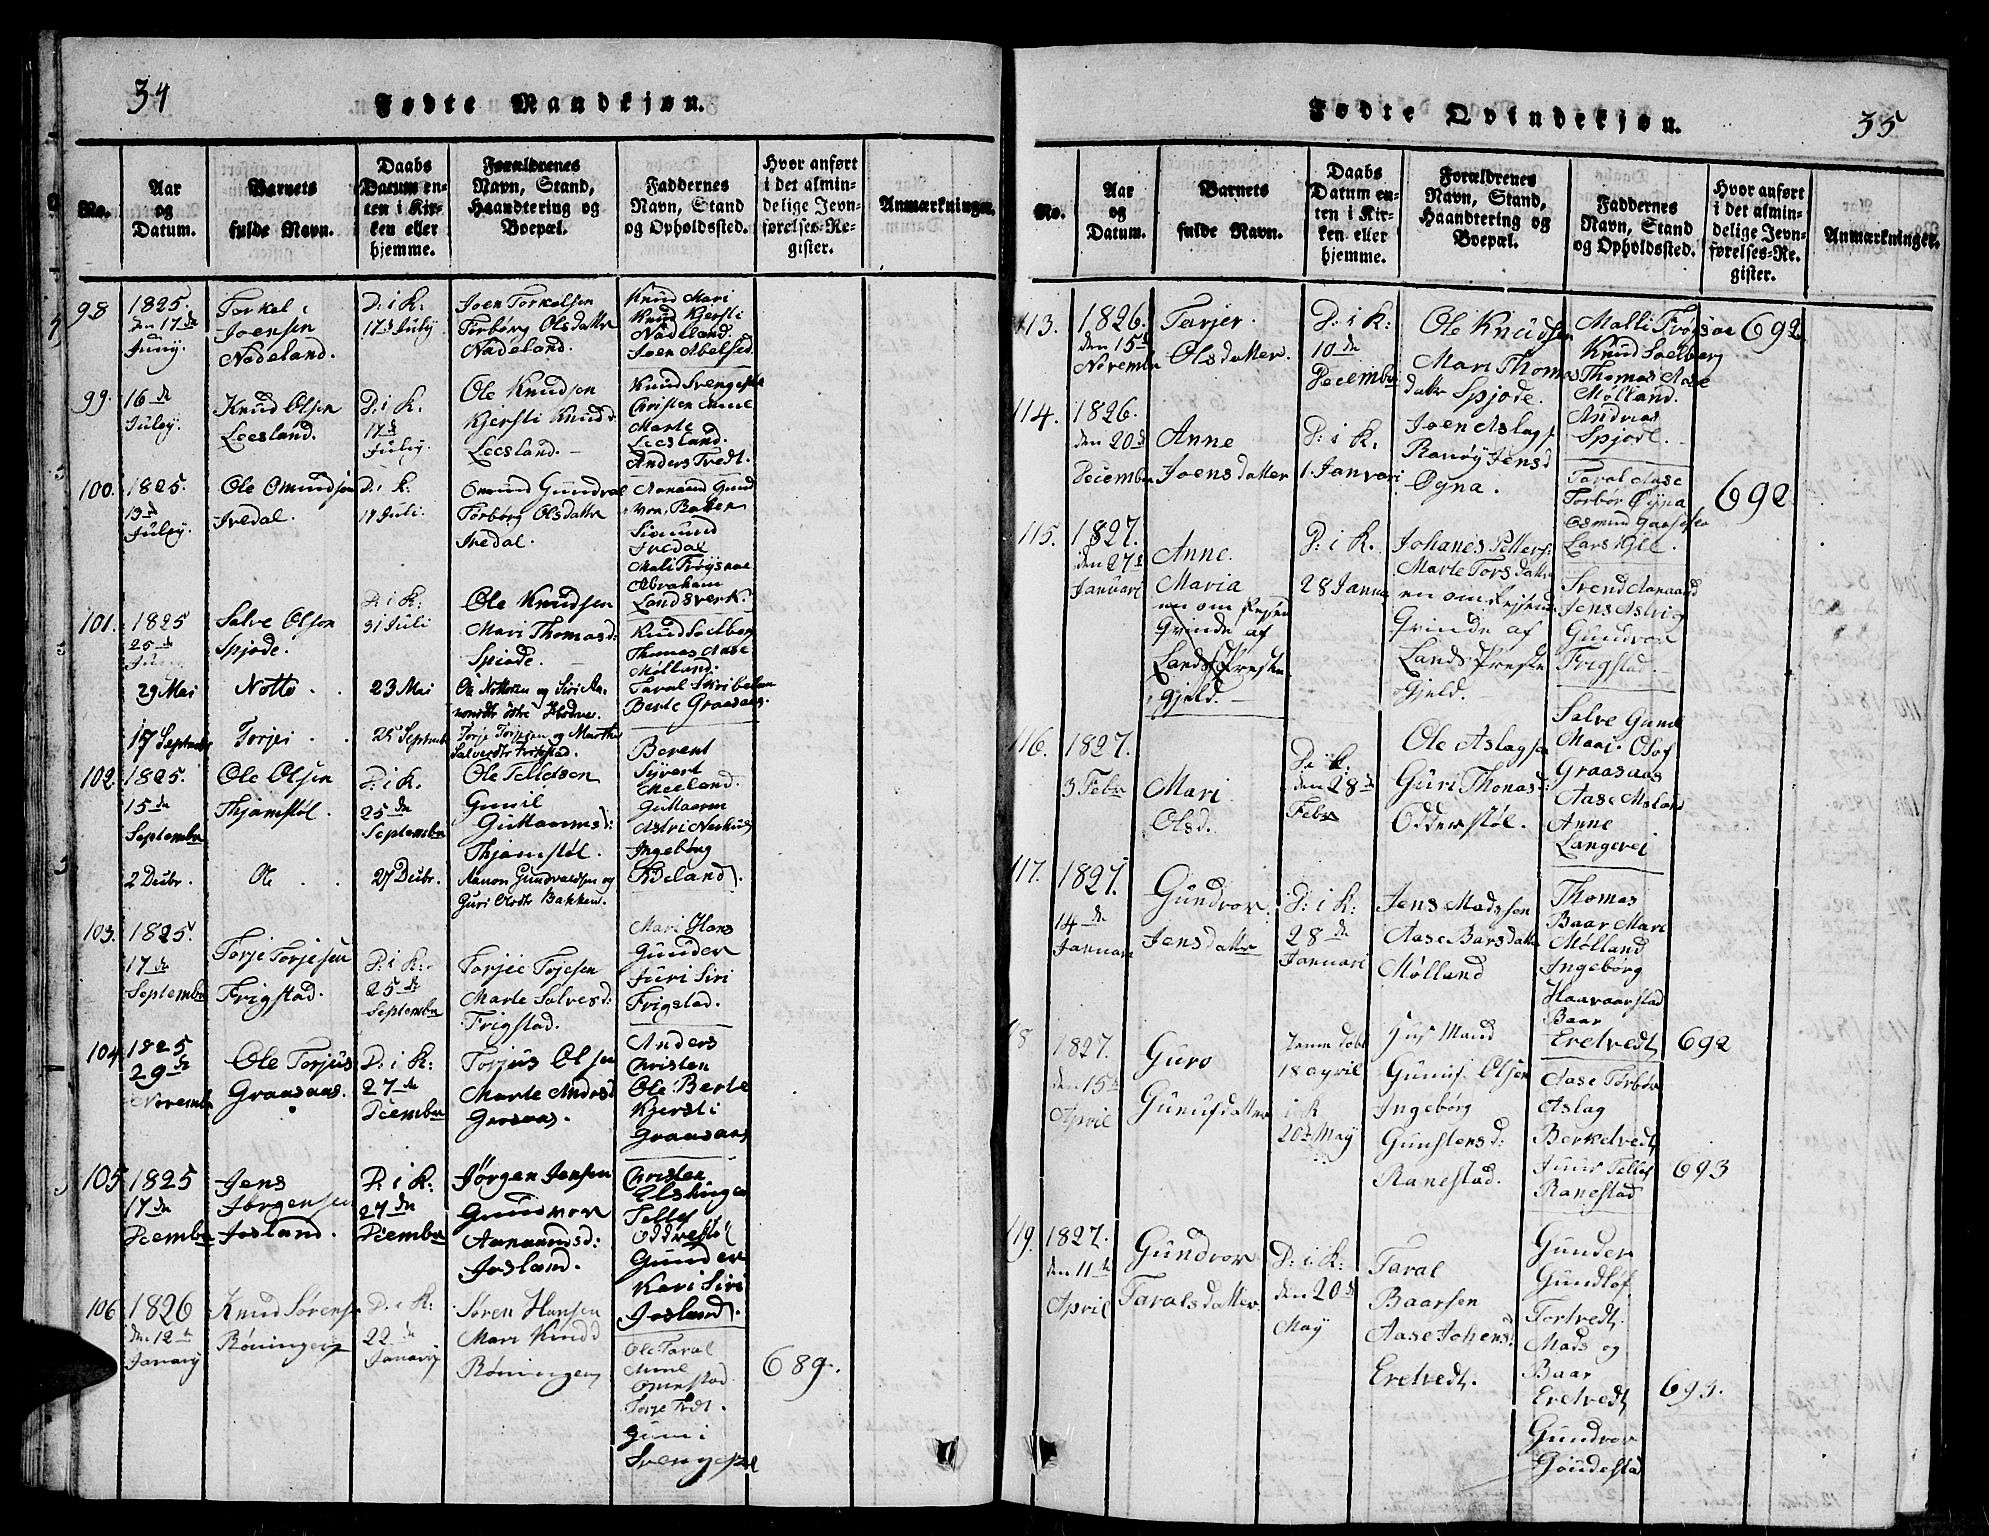 34
Fødte Mandkjøn.
No.
Aar
og
Datum.
Barnets
fulde Navn.
Daabs
Datum en-
ten i Kir-
ken eller
hjemme.
Forældrenes
Navn, Stand,
Haandtering og
Boepæl.
Faddernes
Navn, Stand
og Opholdssted.
Hvor anført
i det almin-
delige Jevn-
førelses-Re-
gister.
Anmærkninger.
98
1825.
den 17de
Juny.
Torkel
Joensen
Nadeland.
D: i K:
17d July
Joen Torkelsen
Torborg Olsdatter
Nadeland.
Knud Mari
Knud Kjersti
Nadeland
Joen Abelsed
99.
16de
July.
Knud Olsen
Leesland.
D: i K.
17d
July.
Ole Knudsen
Kjersti Knudd
Leesland.
Christen
Marte
Leesland.
Anders Tvedt.
100.
1825.
13d
July.
Ole Omundsøn
Ivedal.
D: i K:
17 Juli
Omund Gundval
Torborg Olsdattr
Ivedal.
Aanaand Gund
vor Bakken
Simund
Ivedal
Mali Frøysnae
Abraham
Landsverk.
101.
1825
25de
Salve Olson
Spjode.
D: i K:
31 Juli
Ole Knudsen
Mari Thomasd:
Spiode.
Knud Soelberg
Thomas Aase
Mølland.
29 Mai
Notto
23 Mai
Ole Nottosen og Siri Aa-
Taral
Berte Graasaas.
17 Septembr
Torjei
25 Septmbr
Torje Torjesen og Marthe
Salvesdtr Frigstad.
102.
1825.
15de
Septembr
Ole Olsen
Thjomstøl.
D: i K:
25de
Septembr
Ole Tellefsen
Gunil
Guttormsd:
Thjomstøl.
Berent
Syvert
Meeland.
Guttorm
Astri
Ingeborg
2 Decbr.
Ole
27 Decbr.
Aanon Gundvaldsen og
Guri Olsdtr Bakken.
103.
1825.
17de
Septembr
Torje Torjesen
Frigstad.
D: i K:
25de
Septembr
Torjei Tojesen
Marte Salvesd:
Frigstad.
Mari Hans
Gunder
Juri Siri
Frigstad.
104.
1825
29de
Novembr
Ole Torjus
Graasaas.
D: i K:
27de
Dcembr
Torjus Olsen
Marte Andesd
Grosaas.
Anders
Christen
Ole Berte
Kjersti
Graasaas
105
1825
17de
Dcembr
Jens
Jorgensen
Josland.
D: i K:
27de
Dcembr
Jørgen Jensen
Gundvor
Aanaunsd:
Josland.
Christen
Tellef
Oddrestøl
Gunder
Kari Siri
Josland.
106
1826
den 12te
Janary
Knud Sørensen
Røningen
D: i K:
22de
Janary
Søren Hansen
Mari Knudd
Røningen
Ole Taral
Omestad
Torje Tvdt.
Guni
689.

35
Fødte Qvindekjøn.
No.
Aar
og
Datum.
Barnets
fulde Navn.
Daabs
Datum en-
ten i Kir-
ken eller
hjemme.
Forældrenes
Navn, Stand,
Haandtering og
Boepæl.
Faddernes
Navn, Stand
og Opholdssted.
Hvor anført
i det almin-
delige Jevn-
førelses-Re-
gister.
Anmærkninger.
113.
1826.
den 15de
Novembr
Tarjer
Olsdatter.
D: i K:
10de
December
Ole Knudsen
Mari Thomas
dattr Spjode.
Malli Frøysnae
Knud Soelberg
Thomas Aase
Mølland.
Andreas
Spjodl.
692
114.
1826.
den 20d
December
Anne
Joensdatter
D: i K.
1 Janvari
Joen Aslags
Ranøy Jensd
Øgna.
Taral Aase
Torbor Øgna
Osmund
Lars Kjle.
692
115.
1827.
den 27d
Januari
Anne
Maria
en om Rejsend
Qvinde af
Lands Præste
gjeld.
D: i K.
28 Janua
Johanes Petters:
Marte Torsdattr
en om Rejsend
Qvinde af
Lands Præste
Gjeld.
Svend Aanaand
Jens Astri og
Gundvor
Frigstad.
116.
1827.
3 Febr
Mari
Olsd.
D: i K.
den 28de
Febr
Ole Aslagsen
Guri Thomasd:
Odderstøl.
Salve Gund
Mari Olof
Graasaas
Aase
Anne
Langevei
117.
1827.
14de
Januari
Gundvor
Jensdattr
D: i K:
28de
Januari
Jens Madssøn
Aase Barsdattr
Mølland
Thomas
Baar Mari
Mølland
Ingeborg
Haavaarstad
Baar
Eretvedt
692
18
1827.
den 15d
April
Guro
Gunufdatter
18 April
i K
20d May
Huus Mand
Gunuf Olsen
Ingeborg
Gunstensd:
Ranestad.
Aase Torbor
Aslag
Berketvedt
Juur Tellef
Ranestad
693
119.
1827.
den 11te
April
Gundvor
Taralsdatter.
D: i K:
den 20d
May
Taral
Baarsen
Aase Johensd
Eretvedt.
Gunder
Gundlof
Tortvedt.
Mads og
Baar
Eretvedt
Gundvor
693.